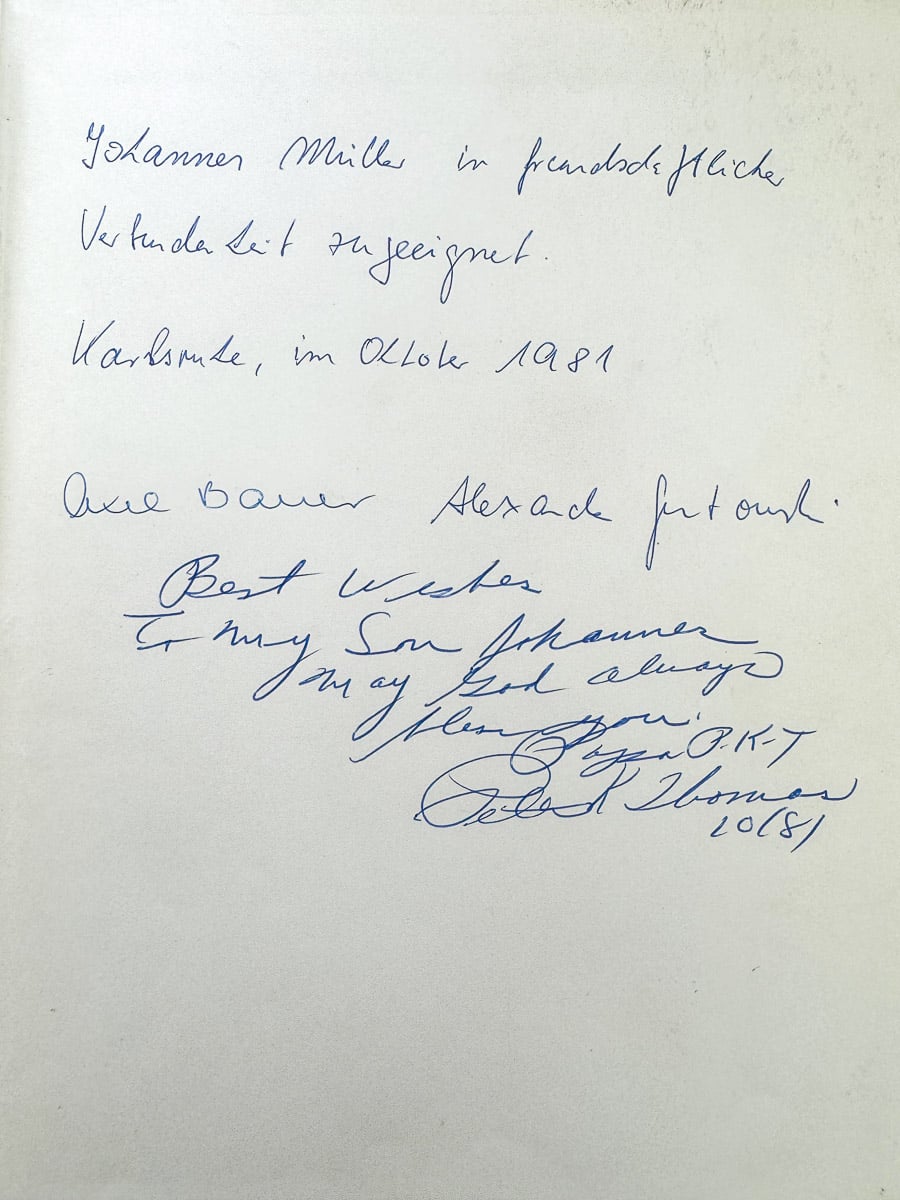 Johannes Müller in freundschaftlicher
Verbundenheit zugeeignet.
Karlsruhe, im Oktober 1981
Axel Bauer Alexander
Best Wishes
To my Son Johannes
May God always
bless you.
Papa P.K-T
Peter K Thomas
10/81